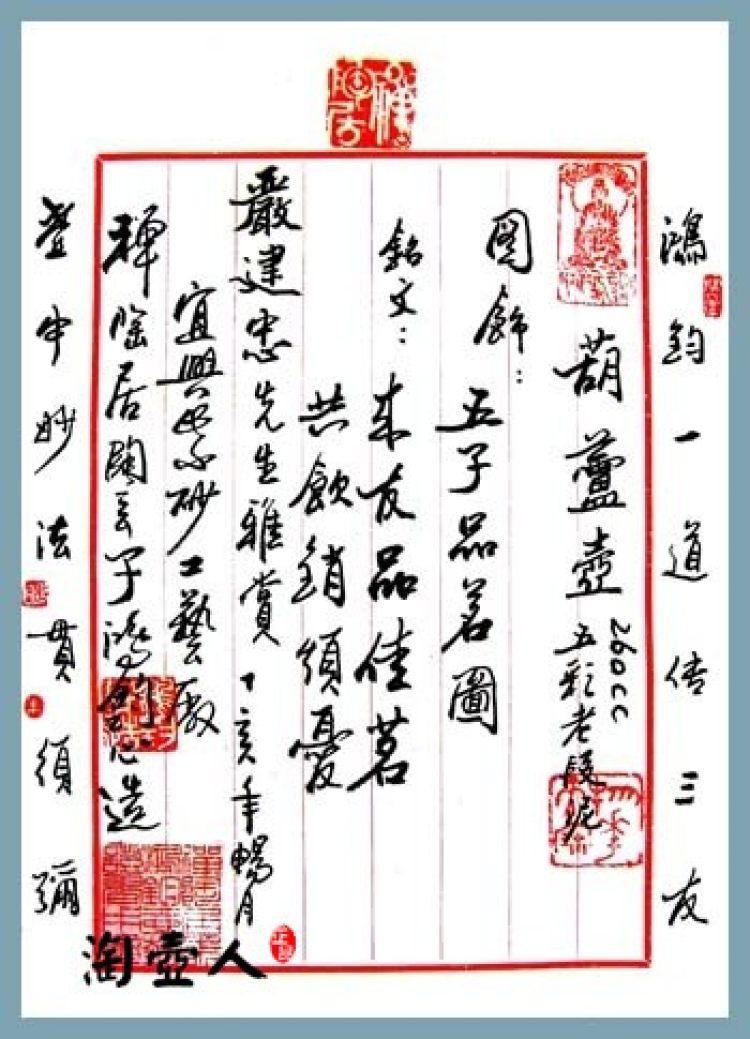 鴻鈞一道传三友
葫蘆壺
260cc
五彩老段泥
圖飾：
五子品茗圖
銘文：
来友品佳茗
共飲銷煩憂
嚴建忠先生雅賞 丁亥年暢月
宜興紫砂工藝廠
禪陶居陶云子鴻鈞造
壺中妙法貫須彌
淘壺人